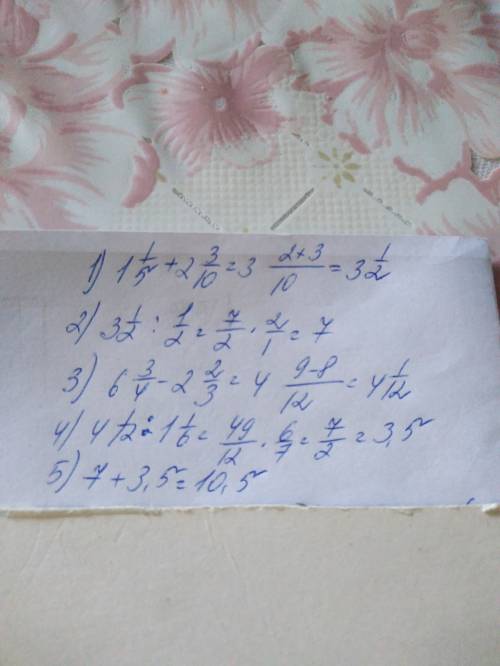 1) 1 1/5 + 2 3/10 = 3 (2+3)/10 = 3 1/2
2) 3 1/2 : 1/2 = 7/2 · 2/1 = 7
3) 6 3/4 - 2 2/3 = 4 (9-8)/12 = 4 1/12
4) 4 1/12 : 1 1/6 = 49/12 · 6/7 = 7/2 = 3,5
5) 7 + 3,5 = 10,5